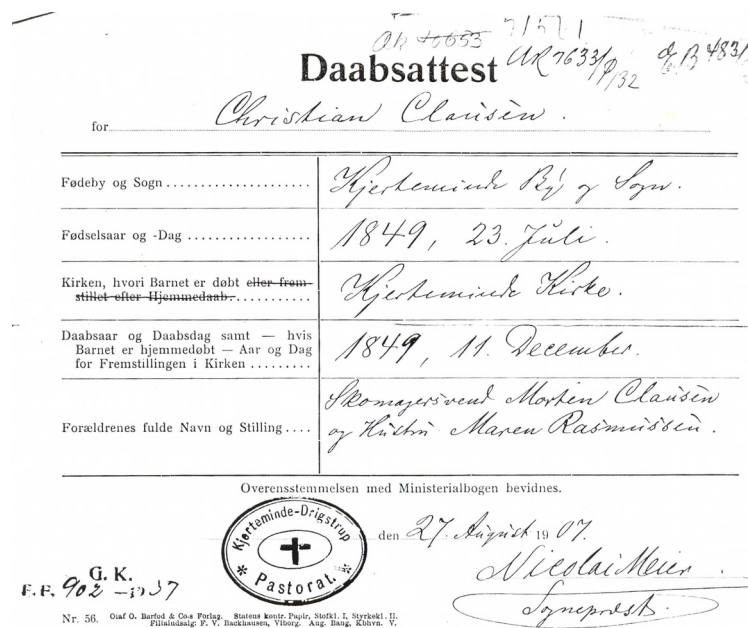 7/521
AR 10653
AR 7633/P/32
Daabsattest
for Christian Clausen.
Fødeby og Sogn Kjerteminde By og Sogn.
Fødselsaar og -Dag 1849, 23. Juli.
Kirken, hvori Barnet er døbt eller frem-
stillet efter Hjemmedaab. Kjerteminde Kirke.
Daabsaar og Daabsdag samt — hvis
Barnet er hjemmedøbt — Aar og Dag
for Fremstillingen i Kirken 1849, 11. December.
Skomagersvend Morten Clausen
Forældrenes fulde Navn og Stilling og Hustru Maren Rasmussen.
Overensstemmelsen med Ministerialbogen bevidnes.
Kjerteminde-Drigstrup
* Pastorat. *
den 27. August 1907.
Nicolai Meier
Sognepræst.
G. K.
F.F. 902 - 1937
Nr. 56. Olaf O. Barfod & Co.s Forlag. Statens kontr. Papir, Stofkl. I, Styrkekl. II.
Filialudsalg: F. V. Backhausen, Viborg. Aug. Bang, Kbhvn. V.